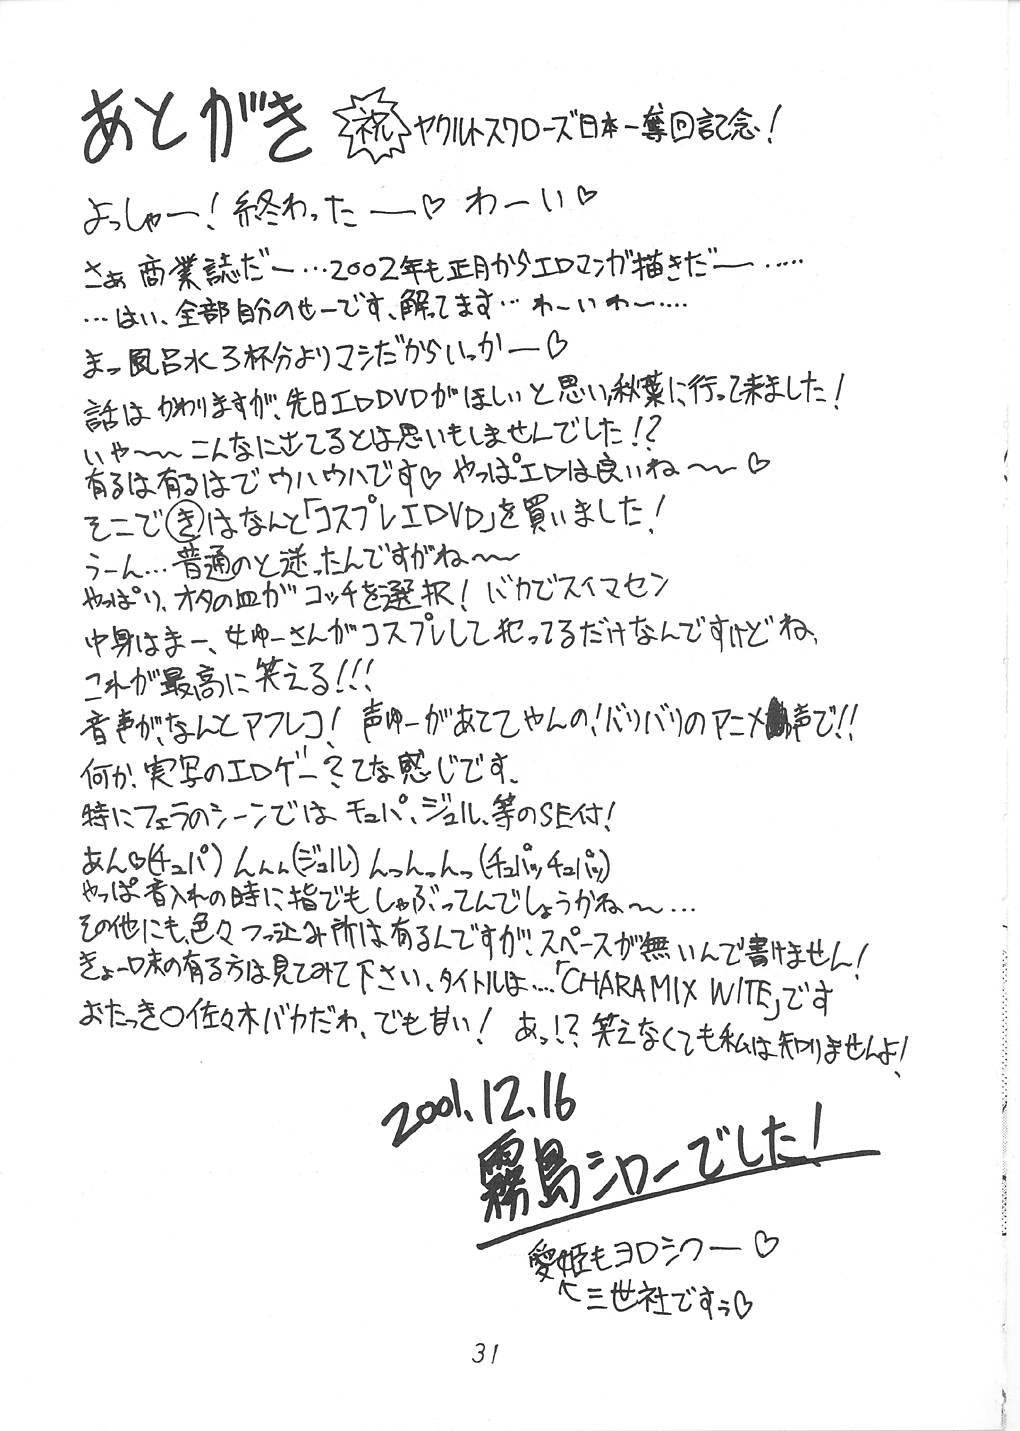 あとがき 祝 ヤクルトスワローズ日本一奪回記念！
よっしゃー！終わったー♡ わーい♡
さぁ商業誌だー…2002年も正月からエロマンガ描きだー……
…はい、全部自分のせーです、解ってます… わーいわー…
まっ風呂水3杯分よりマシだからいっかー♡
話はかわりますが、先日エロDVDがほしいと思い、秋葉に行って来ました！
いや〜〜こんなに出てるとは思いもしませんでした！？
有るは有るはでウハウハです♡ やっぱエロは良いね〜〜♡
そこできはなんと「コスプレエロDVD」を買いました！
うーん…普通のと迷ったんですがね〜〜
やっぱり、オタの血がコッチを選択！バカでスイマセン
中身はまー、女ゆーさんがコスプレして犯ってるだけなんですけどね、
これが最高に笑える！！！
音声が、なんとアフレコ！声ゆーがあててやんの！バリバリのアニメ声で！！
何か、実写のエロゲー？てな感じです、
特にフェラのシーンではチュパ、ジュル、等のSE付！
あん♡(チュパ) んんん(ジュル) んっんっんっ(チュパッチュパッ)
やっぱ音入れの時に指でもしゃぶってんでしょうかね〜…
その他にも、色々つっ込み所は有るんですが、スペースが無いんで書けません！
きょー味の有る方は見てみて下さい、タイトルは…「CHARAMIX WITE」です
おたっき○佐々木バカだわ、でも甘い！ あっ！？笑えなくても私は知りませんよ！
2001.12.16
霧島シローでした！
愛姫もヨロシクー♡
三世社ですぅ♡
31